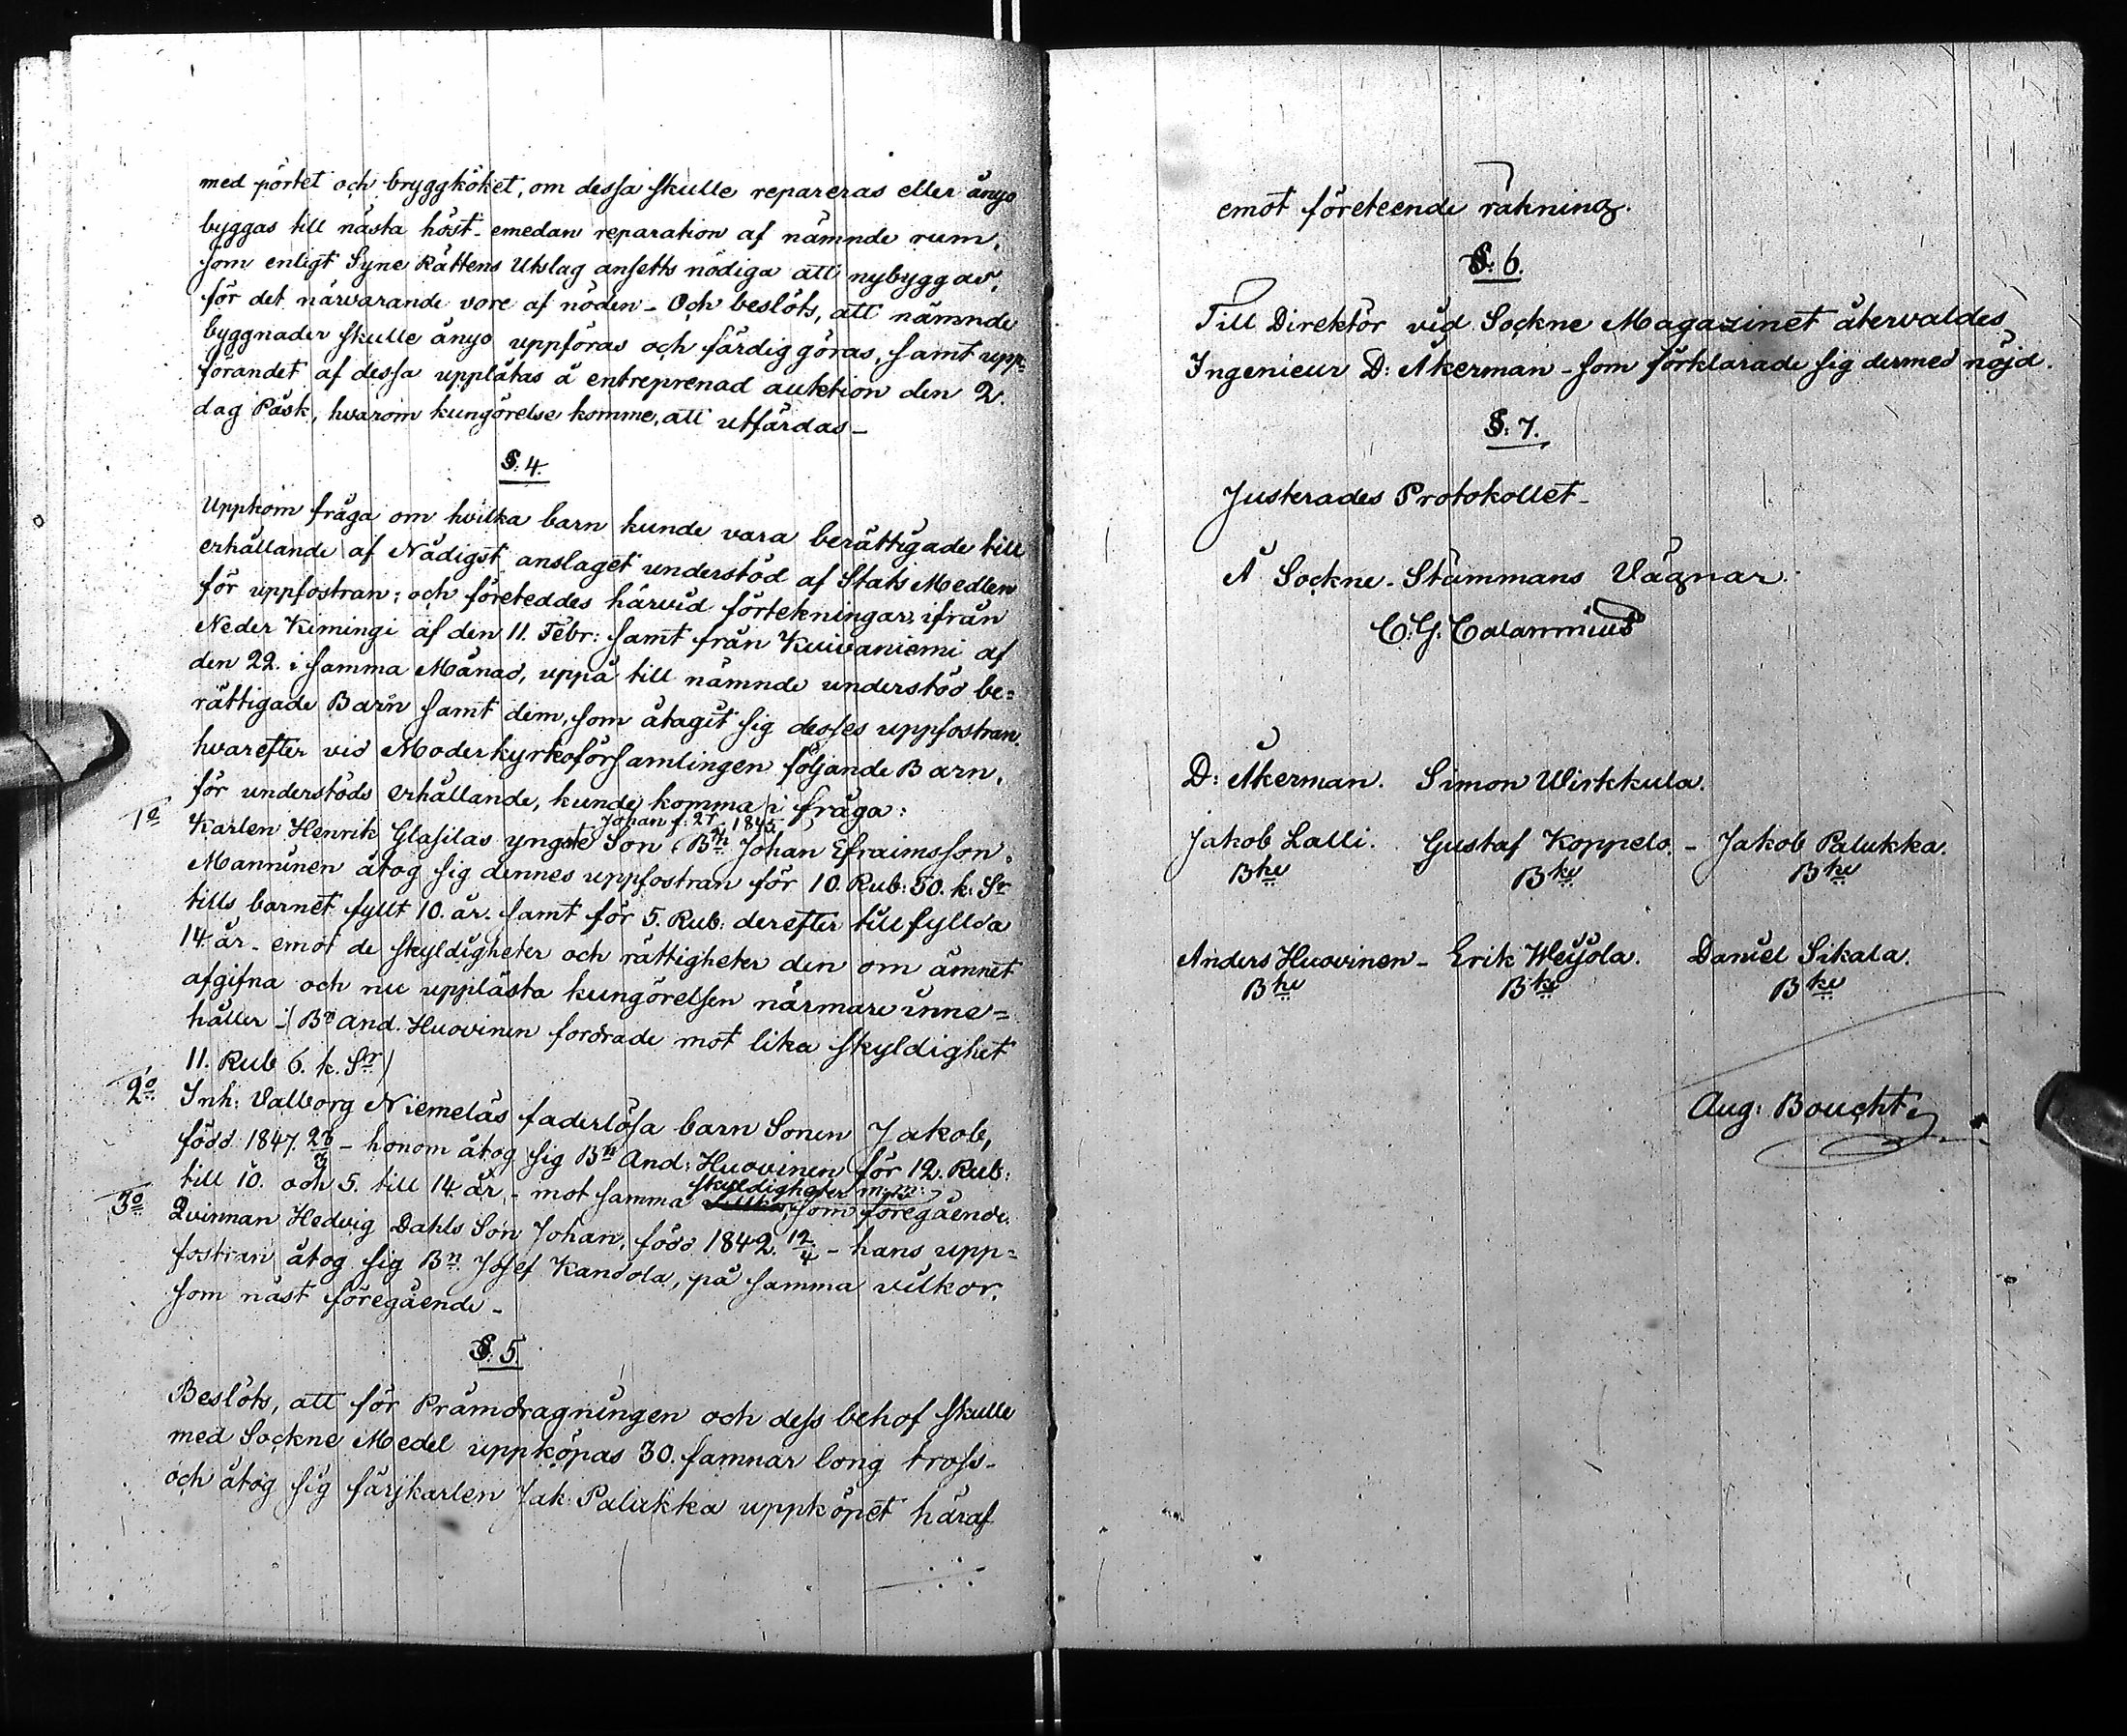 med pörtet och bryggköket, om dessa skulle repareras eller ånyo
byggas till nästa höst - emedan reparation af nämnde rum,
som enligt Syne Rättens Utslag ansetts nödiga att nybyggas,
för det närvarande vore af nöden - Och beslöts, att nämnde
byggnader skulle ånyo uppföras och färdiggöras, samt upp=
förandet af dessa upplåtas å entreprenad auktion den 2.
dag Påsk, hvarom kungörelse komme, att utfärdas -
§. 4.
Uppkom fråga om hvilka barn kunde vara berättigade till
erhållande af Nådigst anslaget understöd af Stats Medlen
för uppfostran; och företeddes härvid förtekningar, ifrån
Neder Kimingi af den 11. Febr: samt från Kuivaniemi af
den 22. i samma Månad, uppå till nämnde understöd be=
rättigade Barn samt dem, som åtagit sig desses uppfostran.
hvarefter vid Moderkyrkoförsamlingen följande Barn,
för understöds erhållande, kunde komma i fråga:
Johan f. 27 1845
1o Karlen Henrik Glasilas yngste Son, Bn Johan Efraimsson
Manninen åtog sig dennes uppfostran för 10. Rub: 50. k: Sr
tills barnet fyllt 10. år. samt för 5. Rub: derefter till fyllda
14. år - emot de skyldigheter och rättigheter den om ämnet
afgifna och nu upplästa kungörelsen närmare inne=
håller - (Bn And. Huovinen fordrade mot lika skyldighet
11. Rub 6. k. Sr)
2o Inh: Valborg Niemeläs faderlösa barn Sonen Jakob,
född 1847. 23/3 - honom åtog sig Bn And: Huovinen för 12. Rub:
till 10. och 5. till 14. år, - mot samma skyldigheter m.m. som föregående.
3o Qvinnan Hedvig Dahls Son Johan, född 1842. 12/4 - hans upp=
fostran åtog sig Bn Josef Kandola, på samma vilkor,
som näst föregående -
§. 5.
Beslöts, att för Pråmdragningen och dess behof skulle
med Sockne Medel uppköpas 30. famnar long tross -
och åtog sig färjkarlen Jak: Palukka uppköpet häraf
emot företeende räkning.
§. 6.
Till Direktör vid Sockne Magazinet återvaldes
Ingenieur D: Åkerman - som förklarade sig dermed nöjd.
§: 7.
Justerades Protokollet -
Å Sockne-Stämmans Vägnar.
C: G: Calamnius
D: Åkerman. Simon Wirkkula.
Jakob Lalli. Gustaf Koppelo. - Jakob Palukka.
Bke Bke Bke
Anders Huovinen - Erik Weijola. Daniel Sikala.
Bke Bke Bke
Aug: Boucht